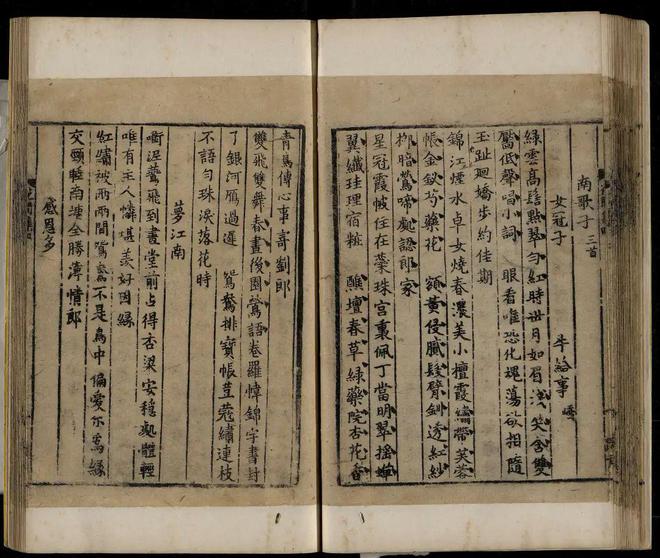 南歌子 三首
女冠子 牛給事 嶠
綠雲高髻點翠勻紅時世月如眉淺笑含雙
靨低聲唱小詞 眼看唯恐化魂蕩欲相隨
玉趾迴嬌步約佳期
錦江煙水卓女燒春濃美小檀霞繡帶芙蓉
帳金釵芍藥花 額黃侵膩髮臂釧透紅紗
柳暗鶯啼處認郎家
星冠霞帔住在蘂珠宮裏佩丁當明翠搖蟬
翼纖珪理宿粧 醮壇春草綠藥院杏花香
青鳥傳心事寄劉郎
雙飛雙舞春晝後園鶯語卷羅幃錦字書封
了銀河鴈過遲 鴛鴦排寶帳荳蔻繡連枝
不語勻珠淚落花時
夢江南
啣泥鷰飛到畫堂前占得杏梁安穩處體輕
唯有主人憐堪羨好因緣
紅繡被兩兩間鴛鴦不是鳥中偏愛尒為緣
交頸睡南塘全勝薄情郎
感恩多